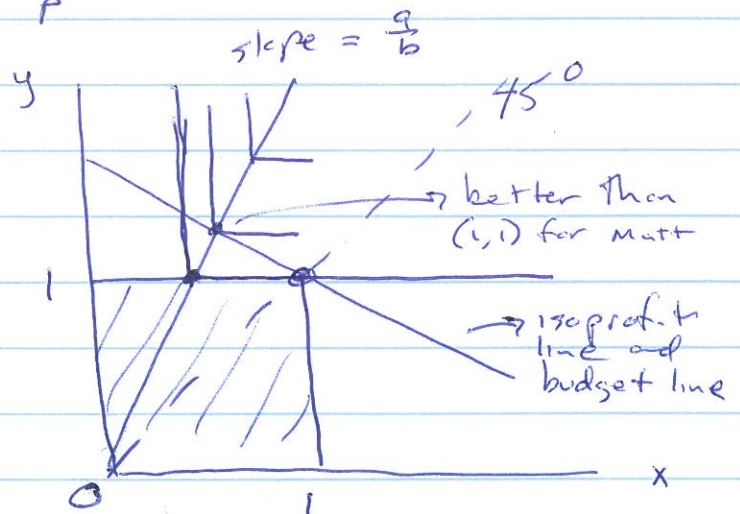 slope = a/b
y
45°
better than
(1,1) for Matt
1
isoprofit
line and
budget line
x
0
1